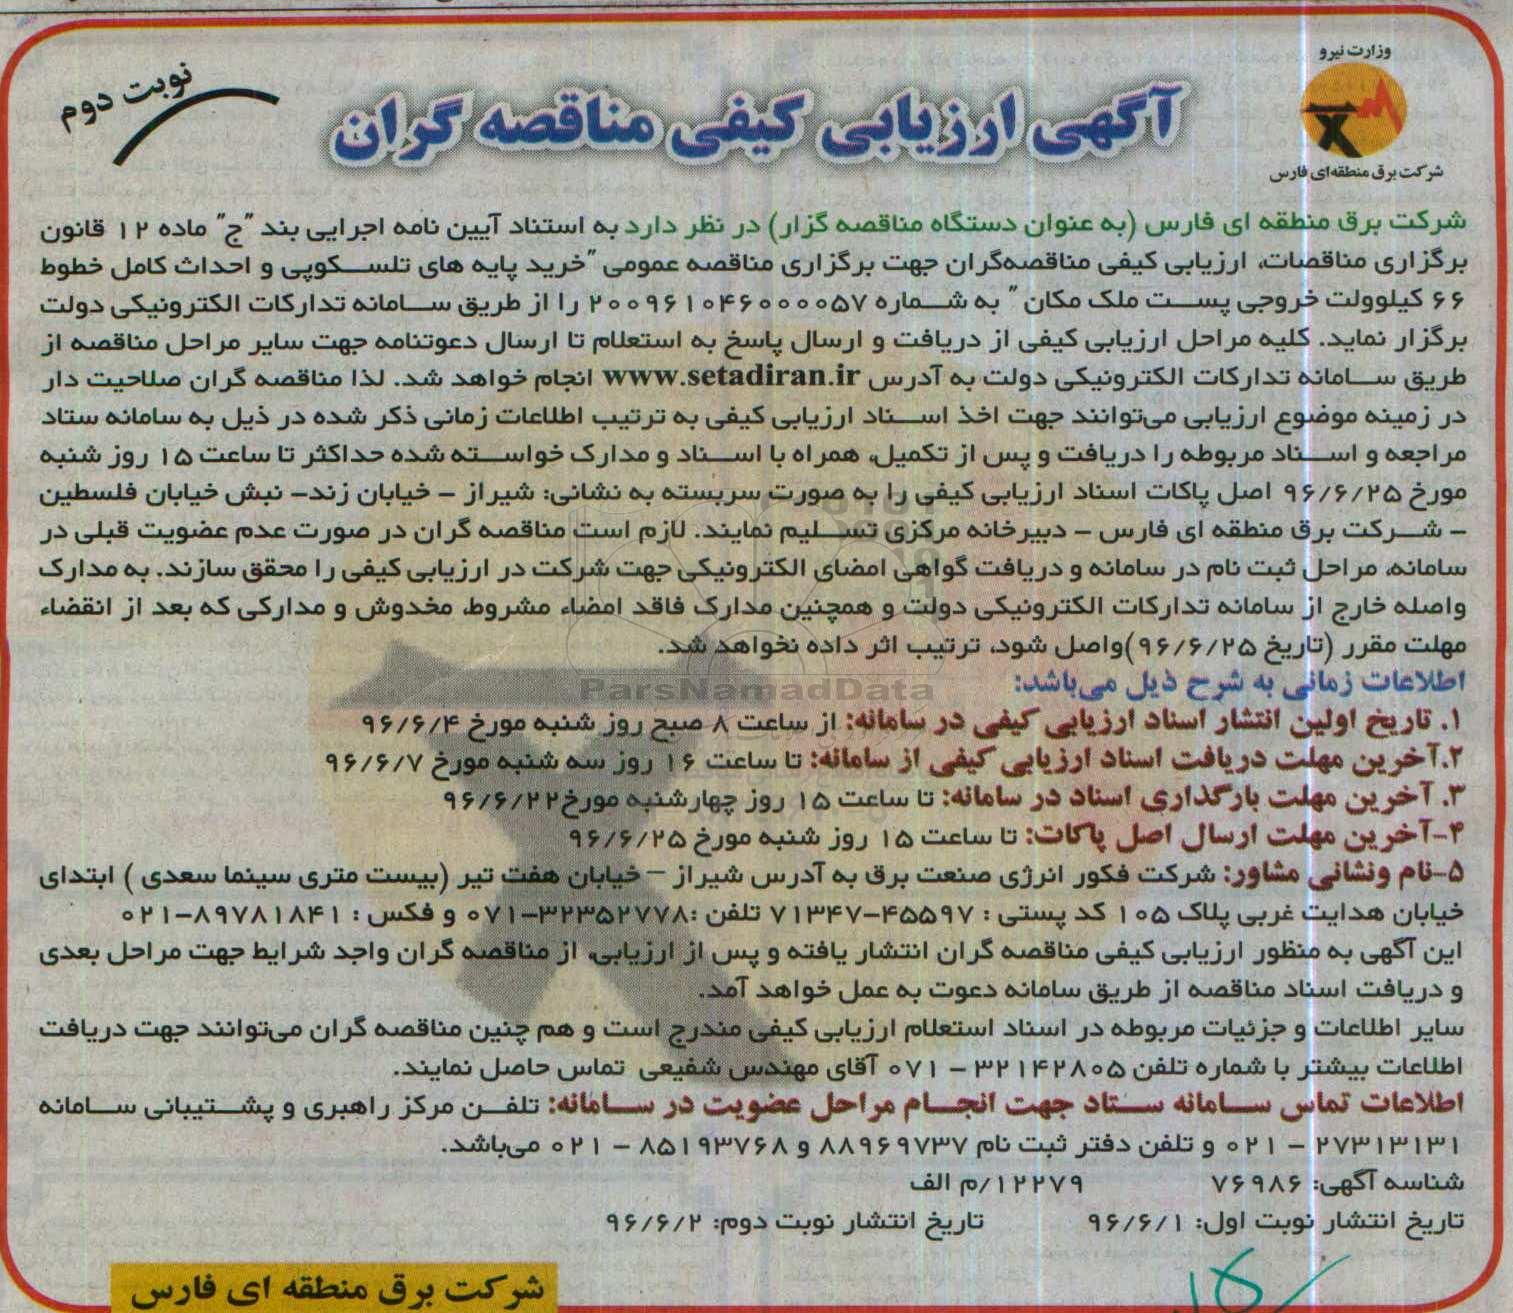 وزارت نیرو
شرکت برق منطقه‌ای فارس
نوبت دوم
آگهی ارزیابی کیفی مناقصه گران
شرکت برق منطقه ای فارس (به عنوان دستگاه مناقصه گزار) در نظر دارد به استناد آیین نامه اجرایی بند "ج" ماده ۱۲ قانون
برگزاری مناقصات، ارزیابی کیفی مناقصه‌گران جهت برگزاری مناقصه عمومی "خرید پایه های تلسکوپی و احداث کامل خطوط
۶۶ کیلوولت خروجی پست ملک مکان" به شماره ۲۰۰۹۶۱۰۴۶۰۰۰۰۵۷ را از طریق سامانه تدارکات الکترونیکی دولت
برگزار نماید. کلیه مراحل ارزیابی کیفی از دریافت و ارسال پاسخ به استعلام تا ارسال دعوتنامه جهت سایر مراحل مناقصه از
طریق سامانه تدارکات الکترونیکی دولت به آدرس www.setadiran.ir انجام خواهد شد. لذا مناقصه گران صلاحیت دار
در زمینه موضوع ارزیابی می‌توانند جهت اخذ اسناد ارزیابی کیفی به ترتیب اطلاعات زمانی ذکر شده در ذیل به سامانه ستاد
مراجعه و اسناد مربوطه را دریافت و پس از تکمیل، همراه با اسناد و مدارک خواسته شده حداکثر تا ساعت ۱۵ روز شنبه
مورخ ۹۶/۶/۲۵ اصل پاکات اسناد ارزیابی کیفی را به صورت سربسته به نشانی: شیراز - خیابان زند- نبش خیابان فلسطین
- شرکت برق منطقه ای فارس - دبیرخانه مرکزی تسلیم نمایند. لازم است مناقصه گران در صورت عدم عضویت قبلی در
سامانه، مراحل ثبت نام در سامانه و دریافت گواهی امضای الکترونیکی جهت شرکت در ارزیابی کیفی را محقق سازند. به مدارک
واصله خارج از سامانه تدارکات الکترونیکی دولت و همچنین مدارک فاقد امضاء، مشروط، مخدوش و مدارکی که بعد از انقضاء
مهلت مقرر (تاریخ ۹۶/۶/۲۵)واصل شود، ترتیب اثر داده نخواهد شد.
ParsNamadData
اطلاعات زمانی به شرح ذیل می‌باشد:
۱. تاریخ اولین انتشار اسناد ارزیابی کیفی در سامانه: از ساعت ۸ صبح روز شنبه مورخ ۹۶/۶/۴
۲.آخرین مهلت دریافت اسناد ارزیابی کیفی از سامانه: تا ساعت ۱۶ روز سه شنبه مورخ ۹۶/۶/۷
۳. آخرین مهلت بارگذاری اسناد در سامانه: تا ساعت ۱۵ روز چهارشنبه مورخ۹۶/۶/۲۲
۴-آخرین مهلت ارسال اصل پاکات: تا ساعت ۱۵ روز شنبه مورخ ۹۶/۶/۲۵
۵-نام ونشانی مشاور: شرکت فکور انرژی صنعت برق به آدرس شیراز - خیابان هفت تیر (بیست متری سینما سعدی ) ابتدای
خیابان هدایت غربی پلاک ۱۰۵ کد پستی : ۴۵۵۹۷-۷۱۳۴۷ تلفن :۳۲۳۵۲۷۷۸-۰۷۱ و فکس : ۸۹۷۸۱۸۴۱-۰۲۱
این آگهی به منظور ارزیابی کیفی مناقصه گران انتشار یافته و پس از ارزیابی، از مناقصه گران واجد شرایط جهت مراحل بعدی
و دریافت اسناد مناقصه از طریق سامانه دعوت به عمل خواهد آمد.
سایر اطلاعات و جزئیات مربوطه در اسناد استعلام ارزیابی کیفی مندرج است و هم چنین مناقصه گران می‌توانند جهت دریافت
اطلاعات بیشتر با شماره تلفن ۳۲۱۴۲۸۰۵ - ۰۷۱ آقای مهندس شفیعی تماس حاصل نمایند.
اطلاعات تماس سامانه ستاد جهت انجام مراحل عضویت در سامانه: تلفن مرکز راهبری و پشتیبانی سامانه
۲۷۳۱۳۱۳۱ - ۰۲۱ و تلفن دفتر ثبت نام ۸۸۹۶۹۷۳۷ و ۸۵۱۹۳۷۶۸ - ۰۲۱ می‌باشد.
شناسه آگهی: ۷۶۹۸۶ ۱۲۲۷۹/م الف
تاریخ انتشار نوبت اول: ۹۶/۶/۱ تاریخ انتشار نوبت دوم: ۹۶/۶/۲
شرکت برق منطقه ای فارس